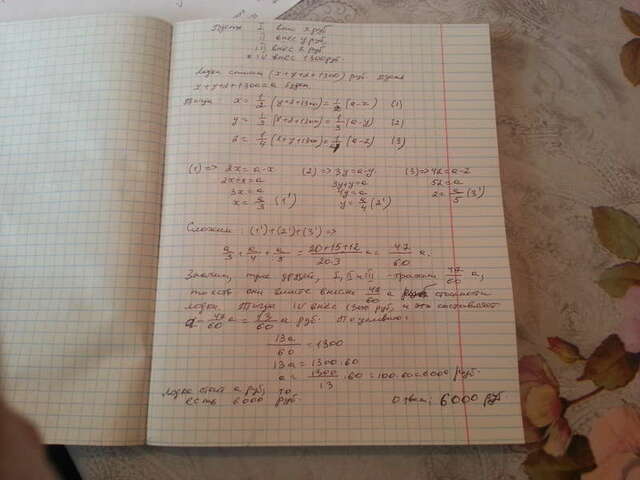 Пусть I внес x руб
II внес y руб.
III внес z руб.
а IV внес 1300 руб.
Лодка стоит (x+y+z+1300) руб. Пусть
x+y+z+1300=a руб.
Тогда x = 1/2 (y+z+1300) = 1/2 (a-x) (1)
y = 1/3 (x+z+1300) = 1/3 (a-y) (2)
z = 1/4 (x+y+1300) = 1/4 (a-z) (3)
(1) => 2x = a-x (2) => 3y = a-y (3) => 4z = a-z
2x+x=a 3y+y=a 5z=a
3x=a 4y=a z=a/5 (3')
x=a/3 (1') y=a/4 (2')
Сложим: (1')+(2')+(3') =>
a/3 + a/4 + a/5 = 20+15+12/20·3 a = 47/60 a.
Значит, трое друзей, I, II и III - 47/60 a,
то есть они вместе внесли 47/60 a стоимости
лодки. Тогда IV внес 1300 руб, и это составляет
a - 47/60 a = 13/60 a руб. По условию:
13a/60 = 1300
13a = 1300·60
a = 1300/13 ·60 = 100·60=6000 руб.
Лодка стоит a руб, то
есть 6000 руб. Ответ: 6000 руб.